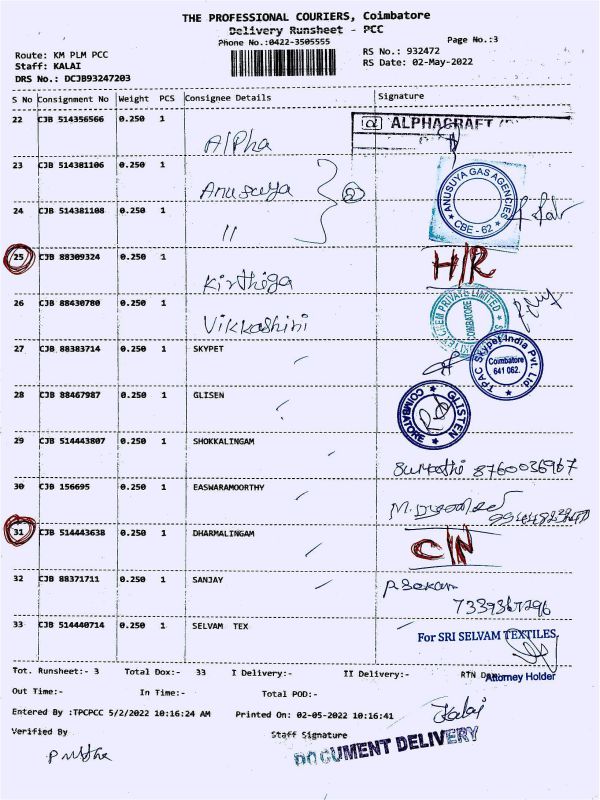 THE PROFESSIONAL COURIERS, Coimbatore
Delivery Runsheet - PCC
Phone No.:0422-3505555
Page No.:3
Route: KM PLM PCC
RS No.: 932472
Staff: KALAI
RS Date: 02-May-2022
DRS No.: DCJB93247203
S No Consignment No Weight PCS Consignee Details Signature
22 CJB 514356566 0.250 1 Alpha ALPHACRAFT
23 CJB 514381106 0.250 1 Anusuya ② ANUSUYA GAS AGENCIES CBE - 62
24 CJB 514381108 0.250 1 11
25 CJB 88309324 0.250 1 Kirthiga H/R
26 CJB 88430780 0.250 1 Vikkashini CHEM PRIVATE LIMITED COIMBATORE
27 CJB 88383714 0.250 1 SKYPET TPAC Skypet India Pvt. Ltd. Coimbatore 641 062.
28 CJB 88467987 0.250 1 GLISEN GLISTEN COIMBATORE
29 CJB 514443807 0.250 1 SHOKKALINGAM Sumathi 8760036967
30 CJB 156695 0.250 1 EASWARAMOORTHY M.
31 CJB 514443638 0.250 1 DHARMALINGAM C/N
32 CJB 88371711 0.250 1 SANJAY P. Sekar
7339367296
33 CJB 514440714 0.250 1 SELVAM TEX For SRI SELVAM TEXTILES,
Attorney Holder
Tot. Runsheet:- 3 Total Dox:- 33 I Delivery:- II Delivery:- RTN
Out Time:- In Time:- Total POD:-
Entered By :TPCPCC 5/2/2022 10:16:24 AM Printed On: 02-05-2022 10:16:41
Kalai
Verified By Staff Signature
DOCUMENT DELIVERY